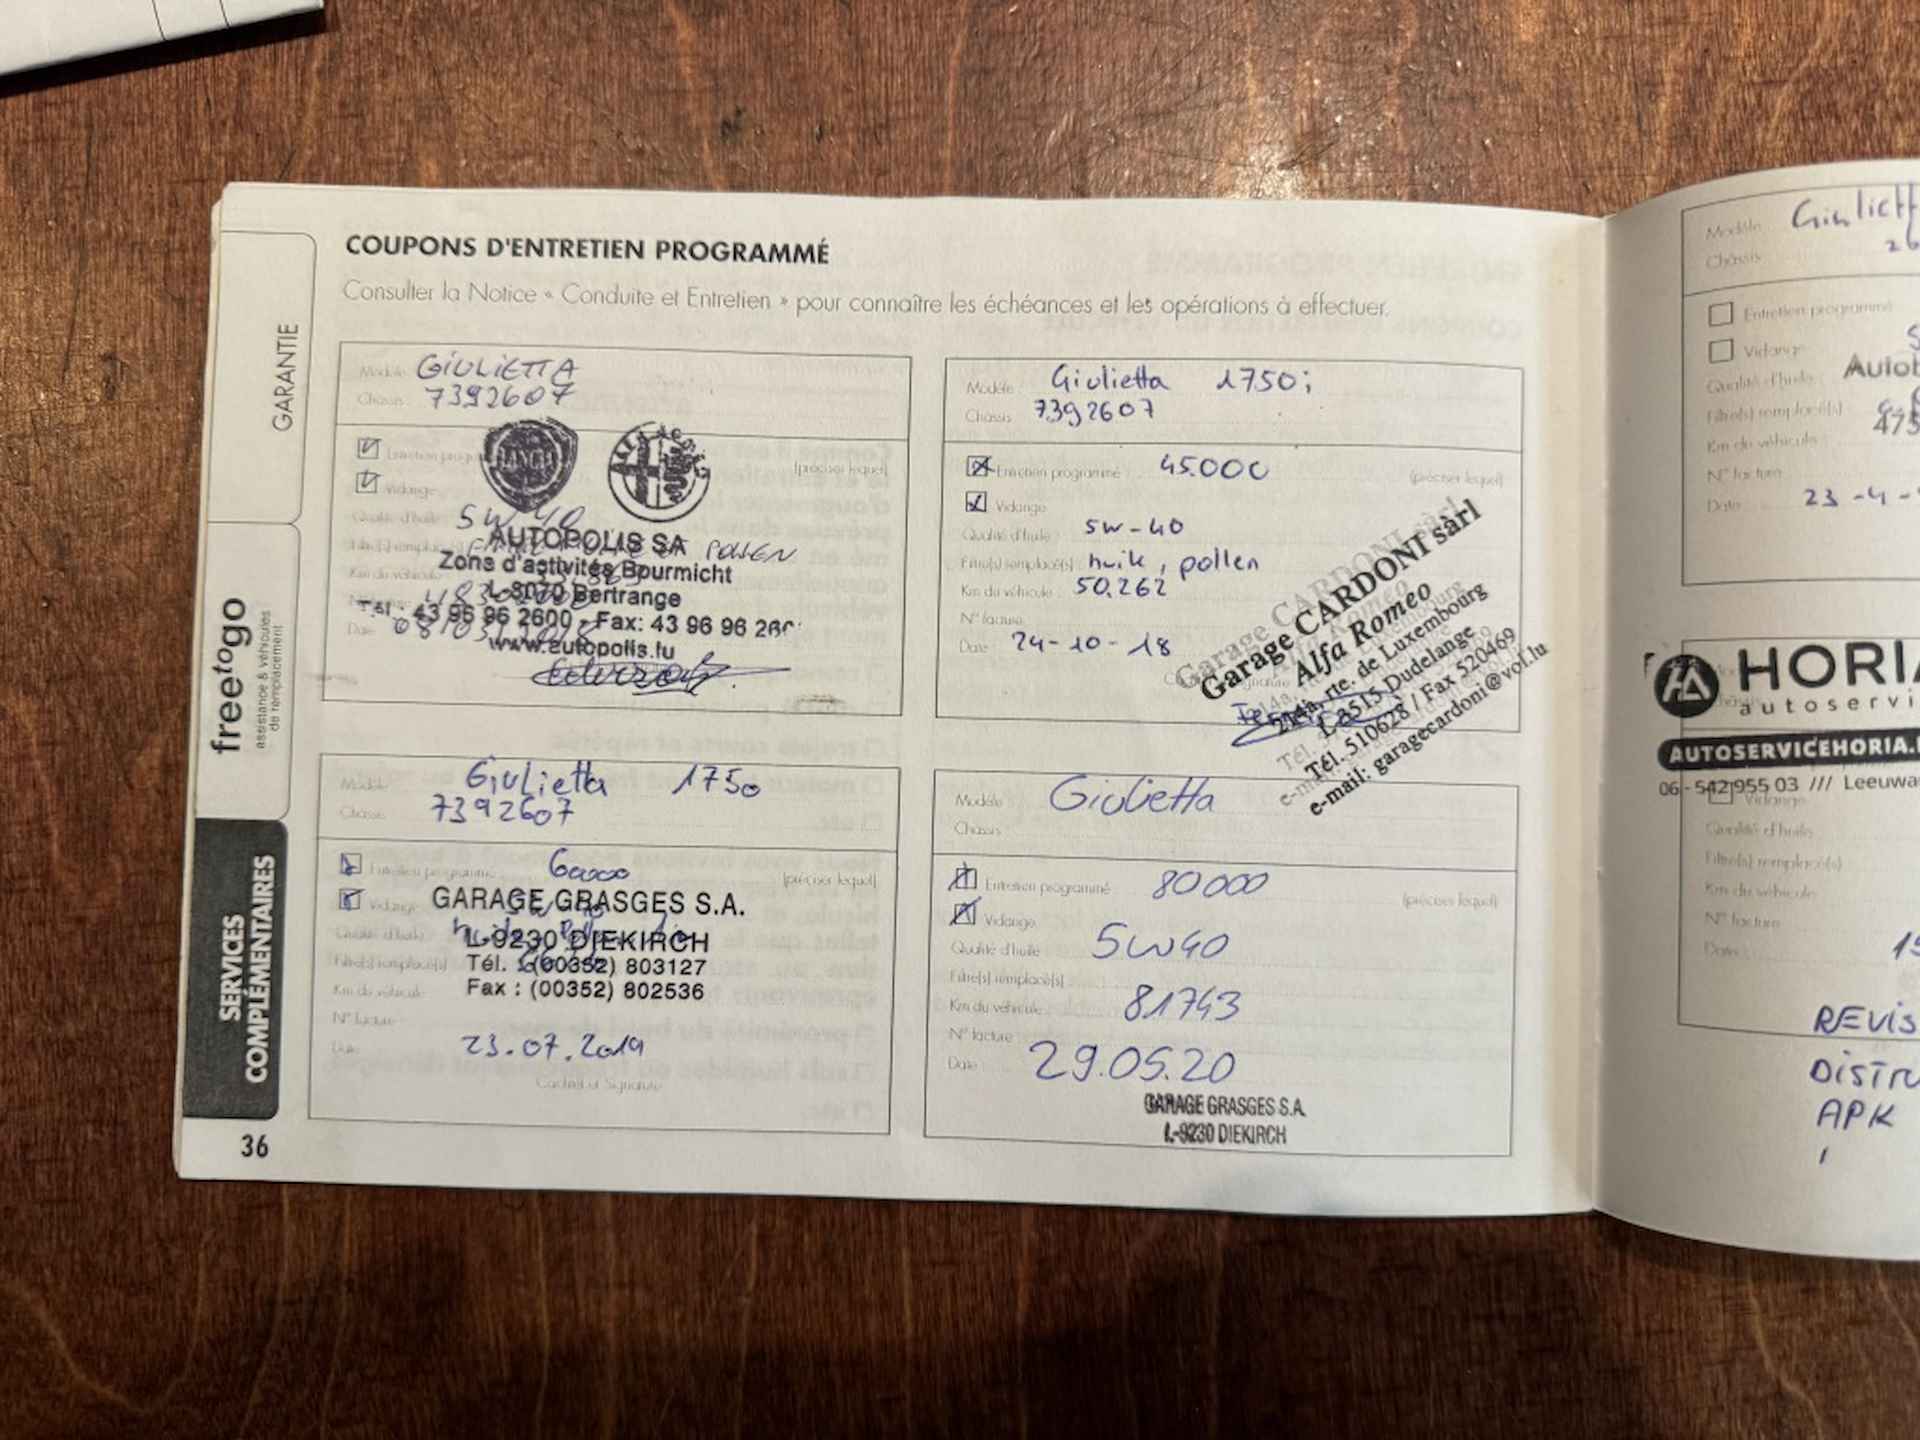 COUPONS D'ENTRETIEN PROGRAMMÉ
Consulter la Notice « Conduite et Entretien » pour connaître les échéances et les opérations à effectuer.
GARANTIE
freetogo
assistance & véhicules
de remplacement
SERVICES
COMPLÉMENTAIRES
36
Modèle GIULIETTA
Châssis 7392607
Entretien programmé
(préciser lequel)
Vidange
Qualité d'huile 5W40
Filtre(s) remplacé(s) POLLEN
Km du véhicule
Date
LANCIA
ALFA ROMEO
AUTOPOLIS SA
Zone d'activités Bourmicht
L-8070 Bertrange
Tél.: 43 96 96 2600 - Fax: 43 96 96
www.autopolis.lu
Modèle Giulietta 1750i
Châssis 7392607
Entretien programmé 45.000 (préciser lequel)
Vidange
Qualité d'huile 5W-40
Filtre(s) remplacé(s) huile, pollen
Km du véhicule 50.262
N° facture
Date 24-10-18
Garage CARDONI sàrl
Alfa Romeo
214a, rte. de Luxembourg
L-3515 Dudelange
Tél. 510628 / Fax 520469
e-mail: garagecardoni@vol.lu
Modèle Giulietta 1750
Châssis 7392607
Entretien programmé 60000 (préciser lequel)
Vidange
Qualité d'huile
Filtre(s) remplacé(s)
Km du véhicule
N° facture
Date 23.07.2019
Cachet et Signature
GARAGE GRASGES S.A.
L-9230 DIEKIRCH
Tél. : (00352) 803127
Fax : (00352) 802536
Modèle Giulietta
Châssis
Entretien programmé 80000 (préciser lequel)
Vidange
Qualité d'huile 5W40
Filtre(s) remplacé(s)
Km du véhicule 81743
N° facture
Date 29.05.20
GARAGE GRASGES S.A.
L-9230 DIEKIRCH
Modèle Giuliett
Châssis 26
Entretien programmé
Vidange
Qualité d'huile
Autob
Filtre(s) remplacé(s)
Km du véhicule
N° facture
Date 23-4-
HORIA
autoservi
AUTOSERVICEHORIA.
06-542 955 03 /// Leeuwa
Vidange
Qualité d'huile
Filtre(s) remplacé(s)
Km du véhicule
N° facture
Date 15
REVIS
DISTRU
APK